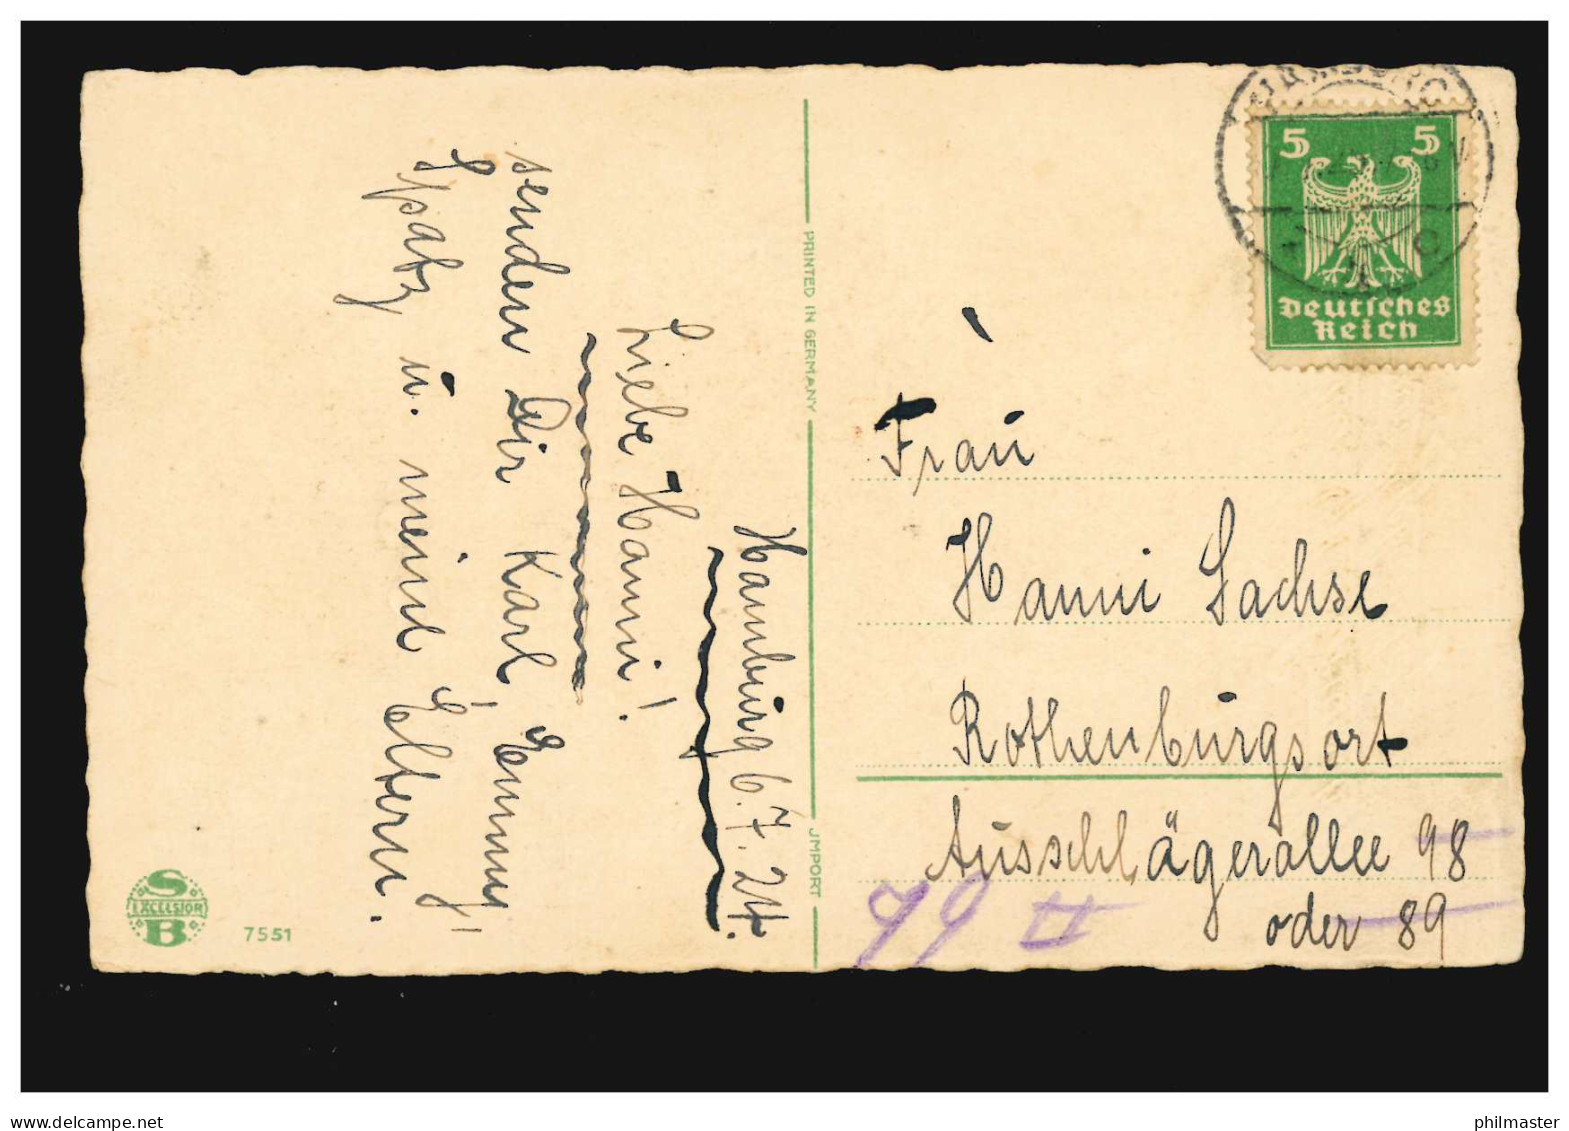 Hamburg 6.7.24.
Liebe Hanni!
senden Dir Karl, Emmy,
Spatz u. meine Eltern.
PRINTED IN GERMANY
JMPORT
5 5
Deutsches
Reich
Frau
Hanni Sachse
Rothenburgsort
Ausschlägerallee 98
oder 89
99 II
S
EXCELSIOR
B
7551
www.delcampe.net
philmaster